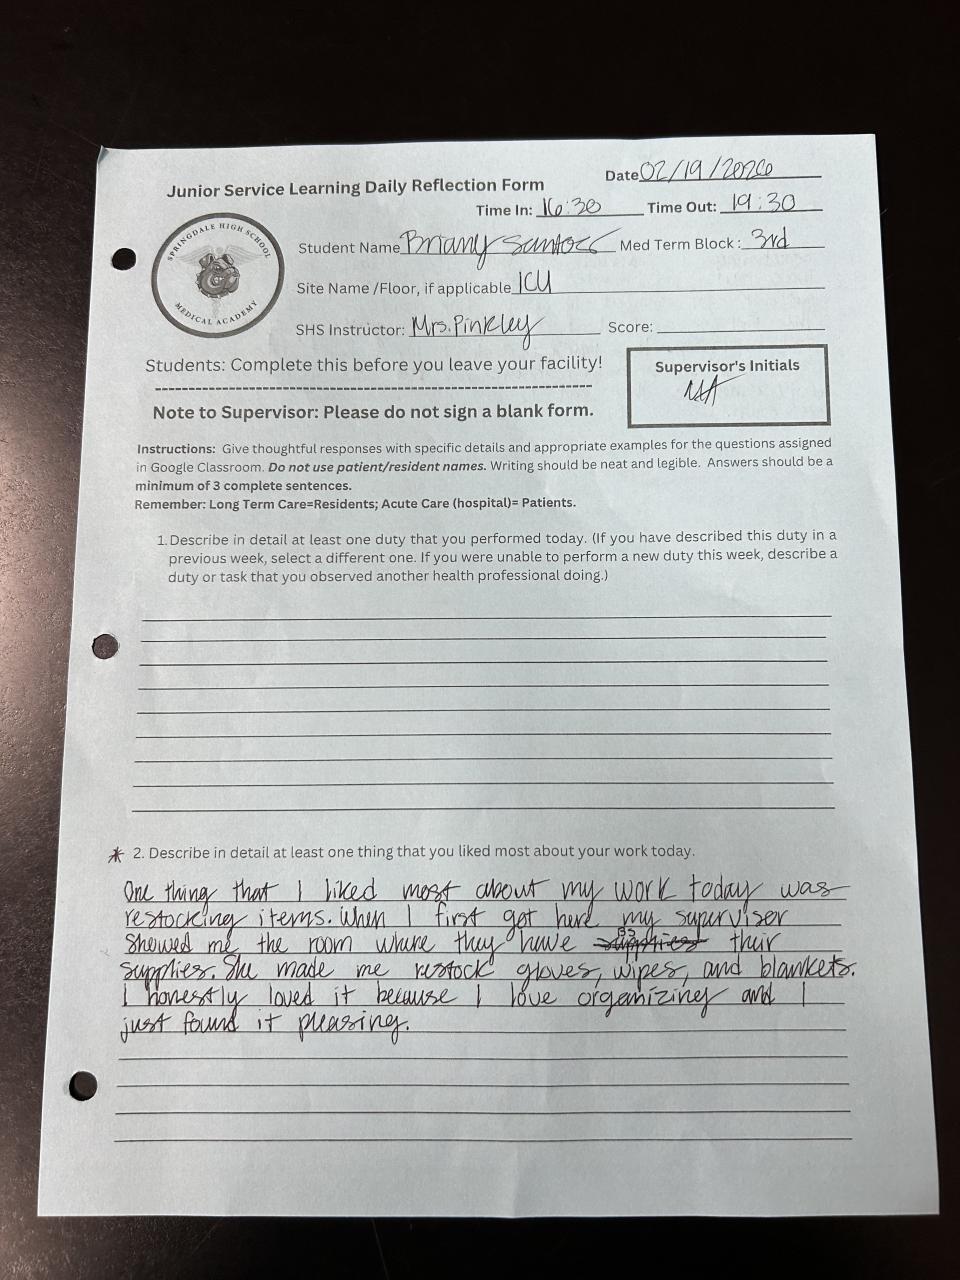 Junior Service Learning Daily Reflection Form
Date 02/19/2026
Time In: 16:30 Time Out: 19:30
SPRINGDALE HIGH SCHOOL
MEDICAL ACADEMY
Student Name Briany Santos Med Term Block: 3rd
Site Name /Floor, if applicable ICU
SHS Instructor: Mrs. Pinkley Score:
Students: Complete this before you leave your facility!
Supervisor's Initials
Note to Supervisor: Please do not sign a blank form.
Instructions: Give thoughtful responses with specific details and appropriate examples for the questions assigned
in Google Classroom. Do not use patient/resident names. Writing should be neat and legible. Answers should be a
minimum of 3 complete sentences.
Remember: Long Term Care=Residents; Acute Care (hospital)= Patients.
1. Describe in detail at least one duty that you performed today. (If you have described this duty in a
previous week, select a different one. If you were unable to perform a new duty this week, describe a
duty or task that you observed another health professional doing.)
* 2. Describe in detail at least one thing that you liked most about your work today.
One thing that I liked most about my work today was
restocking items. When I first got here my supervisor
showed me the room where they have supplies BS their
supplies. She made me restock gloves, wipes, and blankets.
I honestly loved it because I love organizing and I
just found it pleasing.